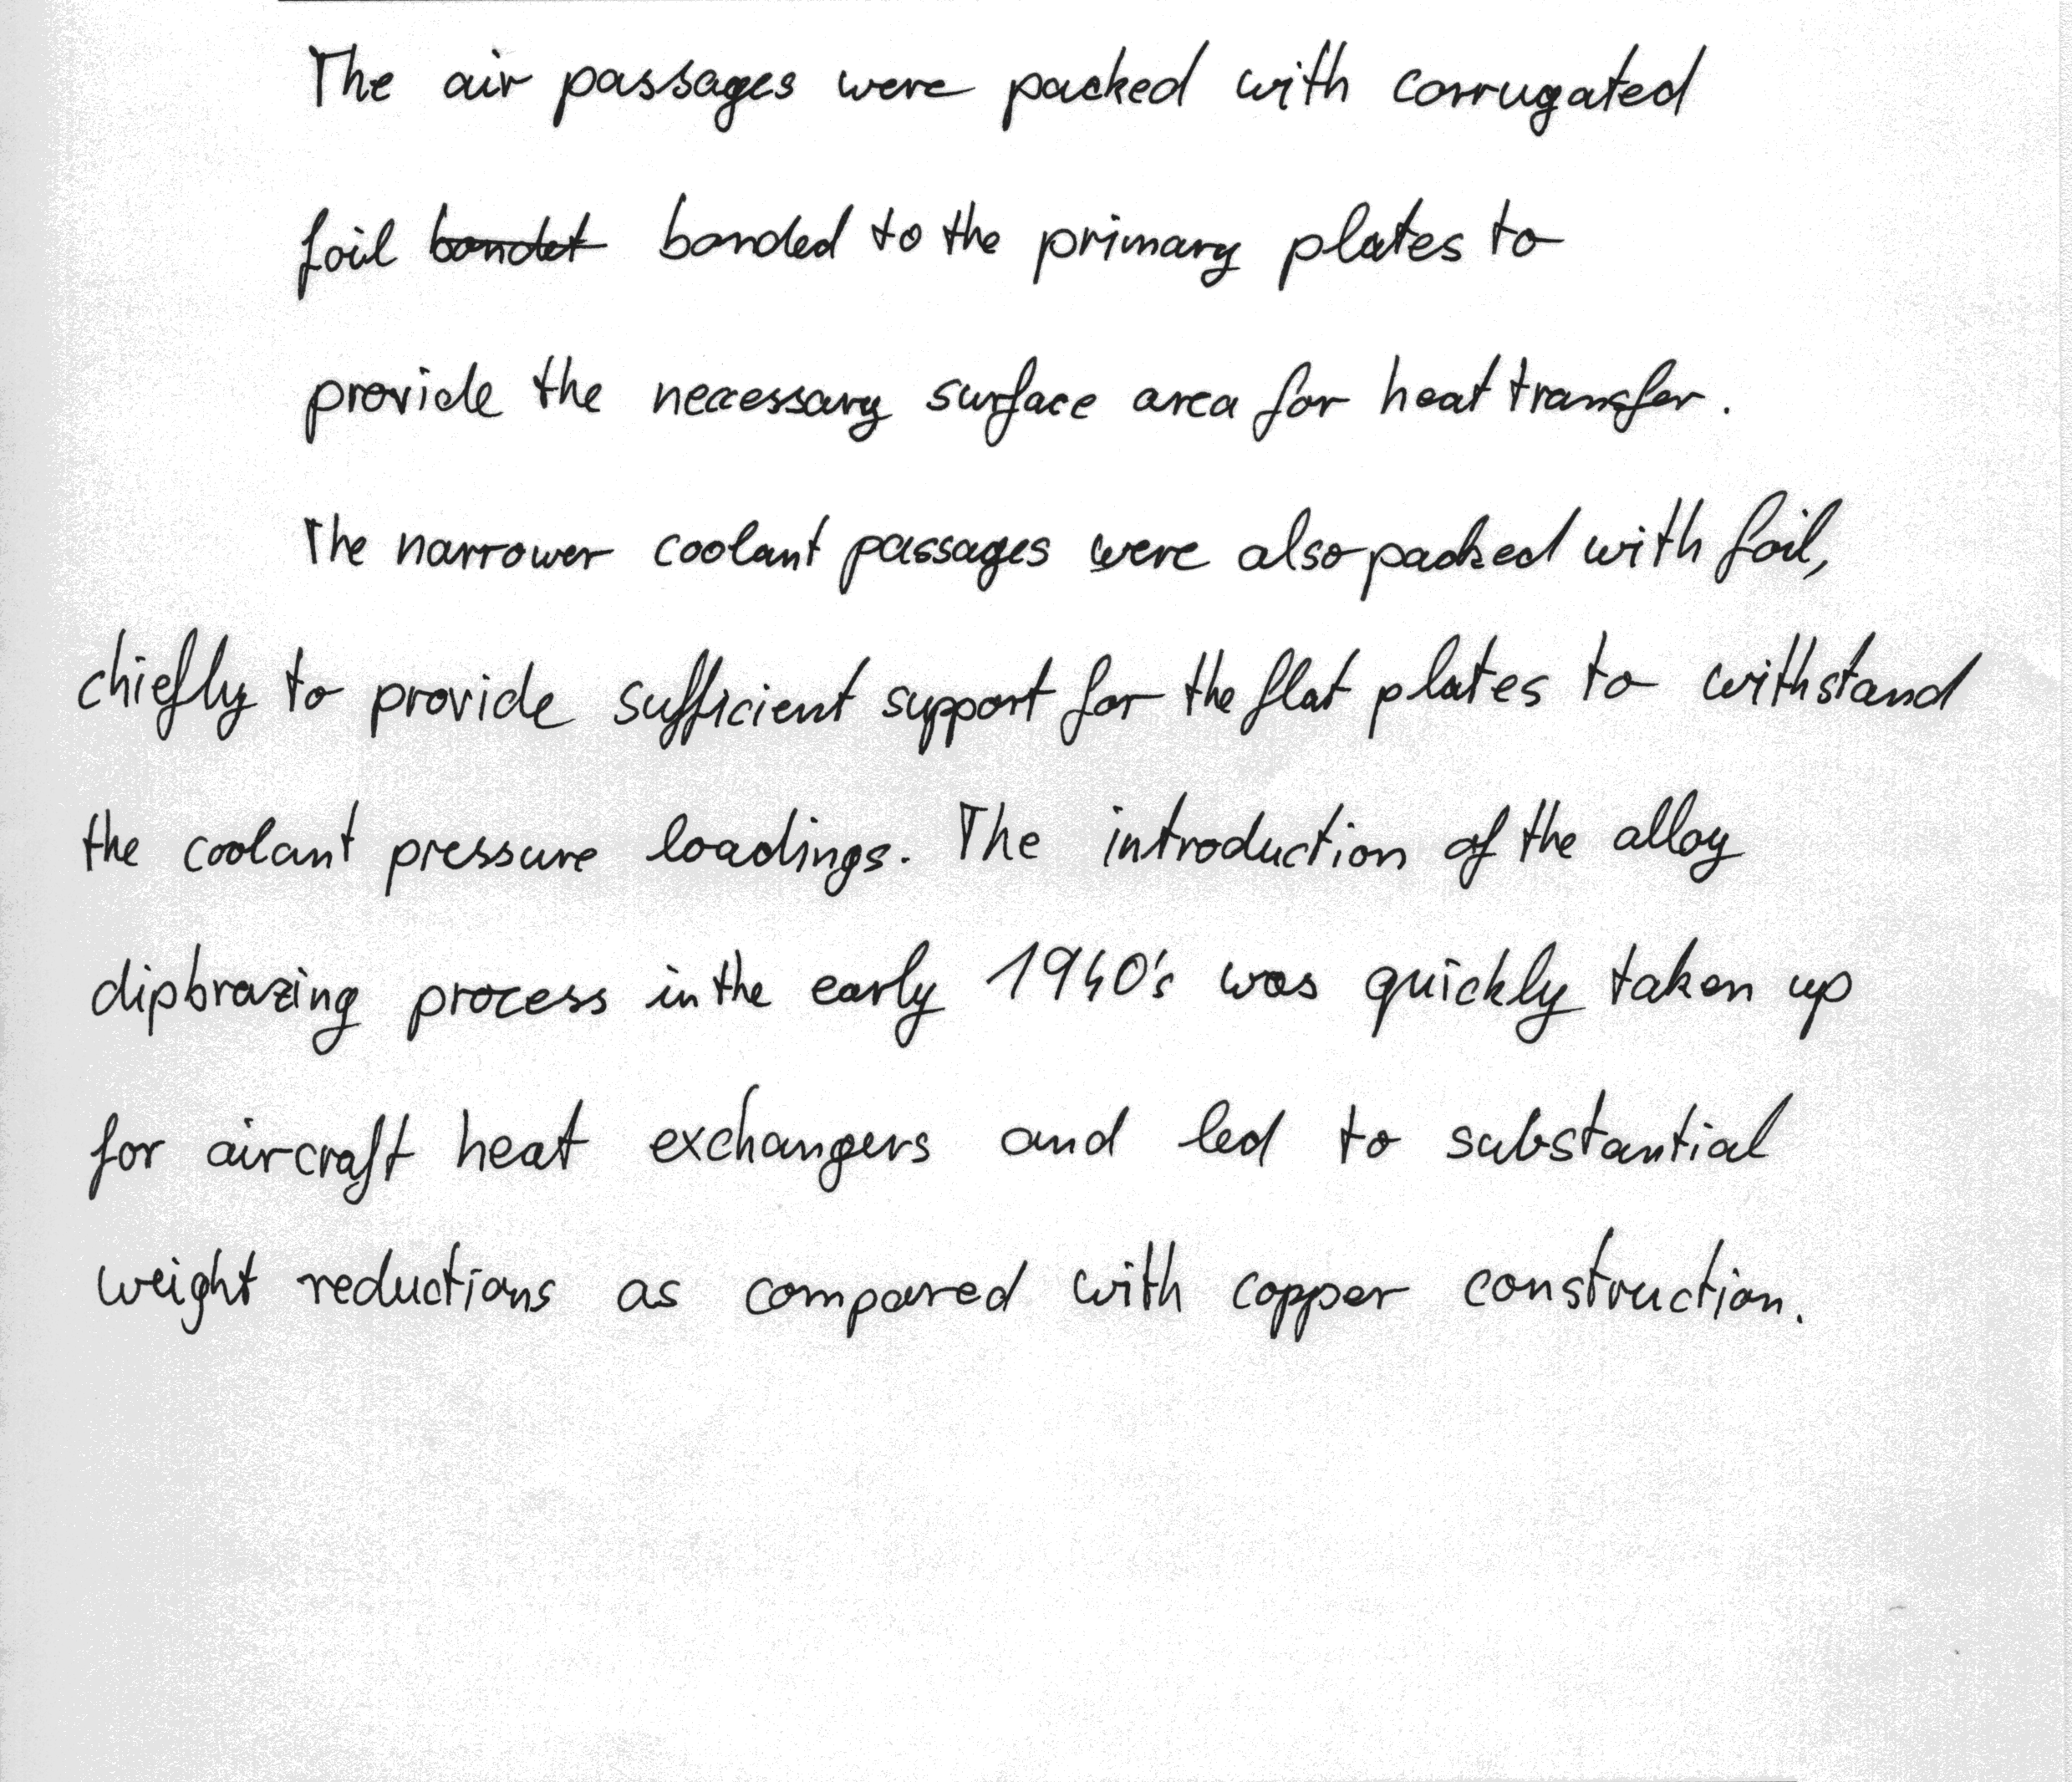 The air passages were packed with corrugated
foil bondet bonded to the primary plates to
provide the necessary surface area for heat transfer.
The narrower coolant passages were also packed with foil,
chiefly to provide sufficient support for the flat plates to withstand
the coolant pressure loadings. The introduction of the alloy
dipbrazing process in the early 1940's was quickly taken up
for aircraft heat exchangers and led to substantial
weight reductions as compared with copper construction.